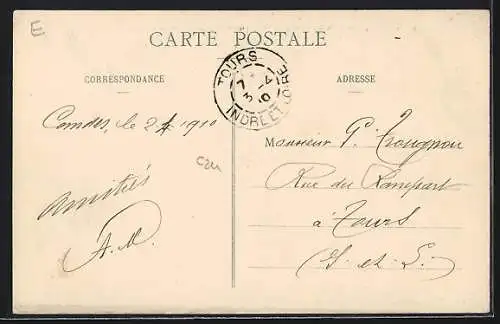 E
CARTE POSTALE
CORRESPONDANCE
ADRESSE
TOURS
7
3 -4
10
INDRE ET LOIRE
Candes, le 2/4 1910
Amitiés
A.M.
Monsieur P.
Rue du Rempart
à Tours
I. et L.